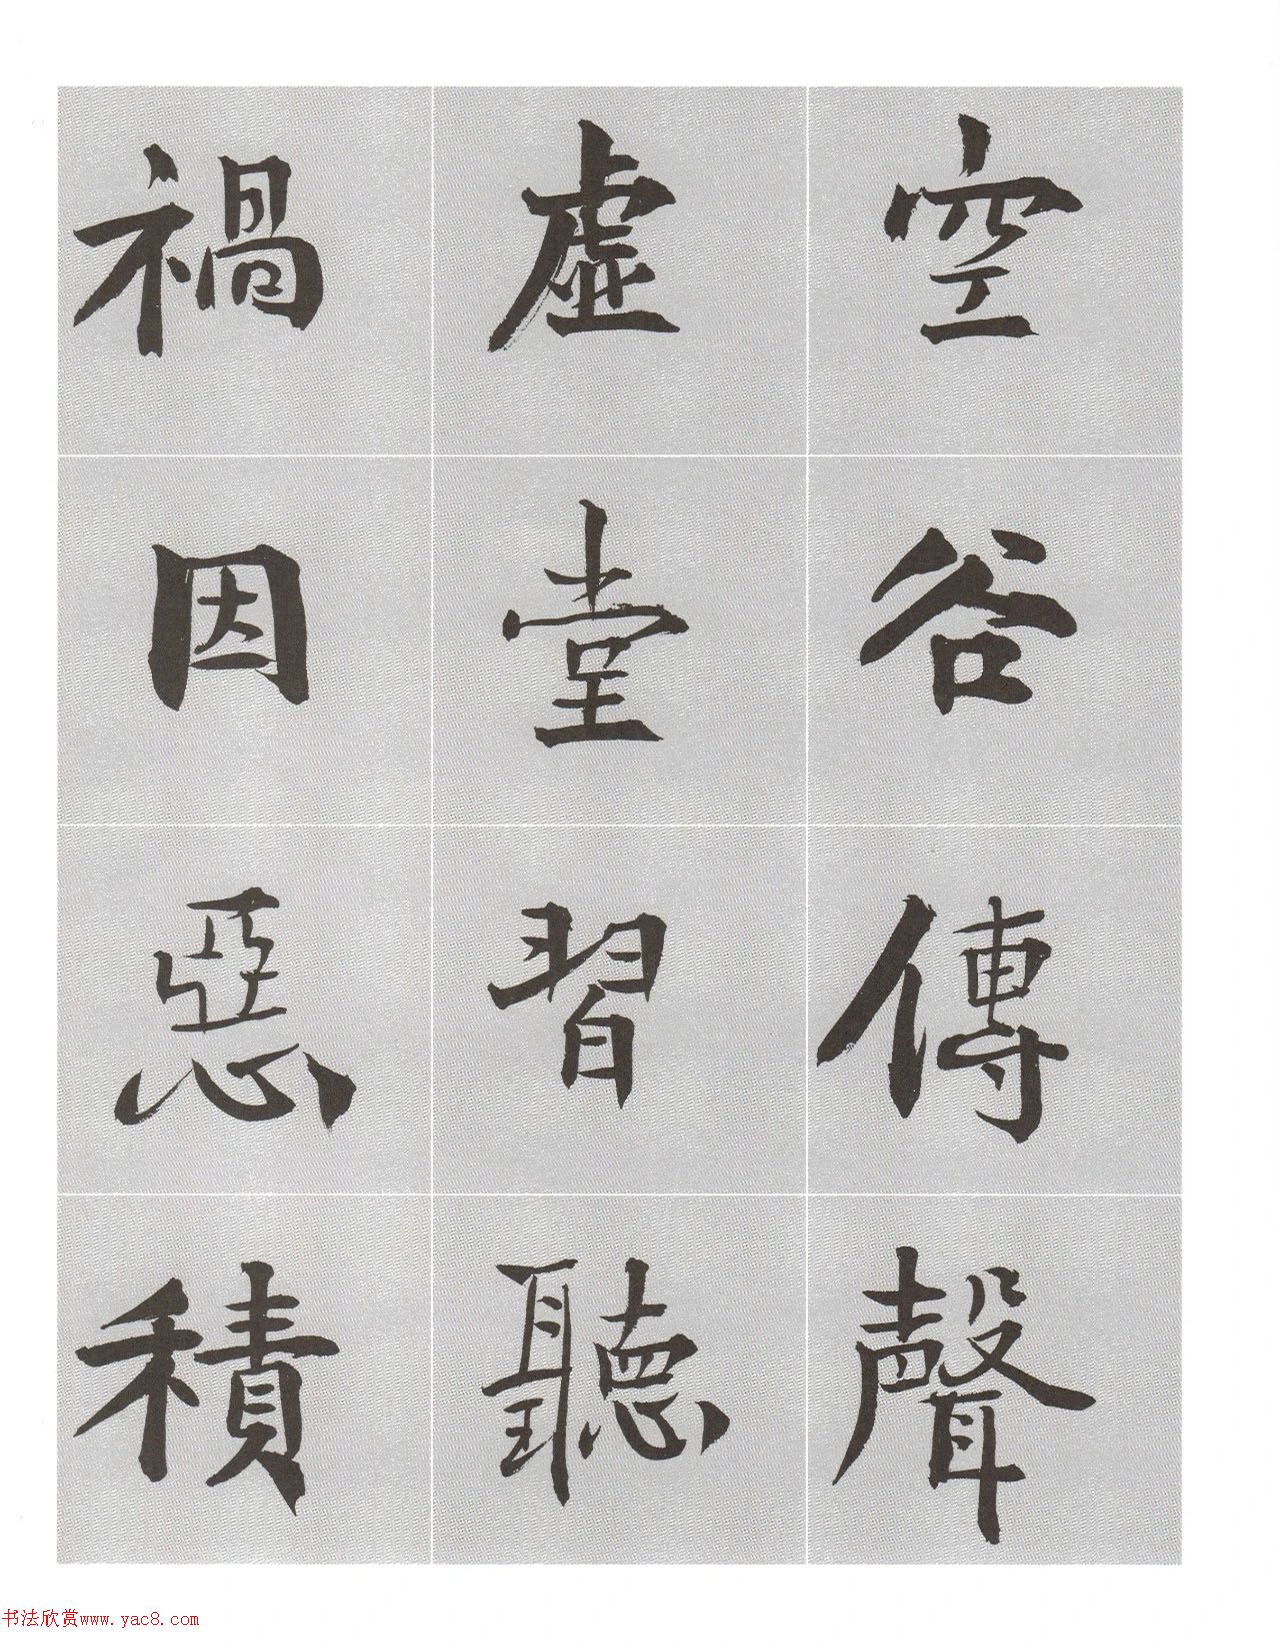 空谷傳聲
虛堂習聽
禍因惡積
书法欣赏www.yac8.com